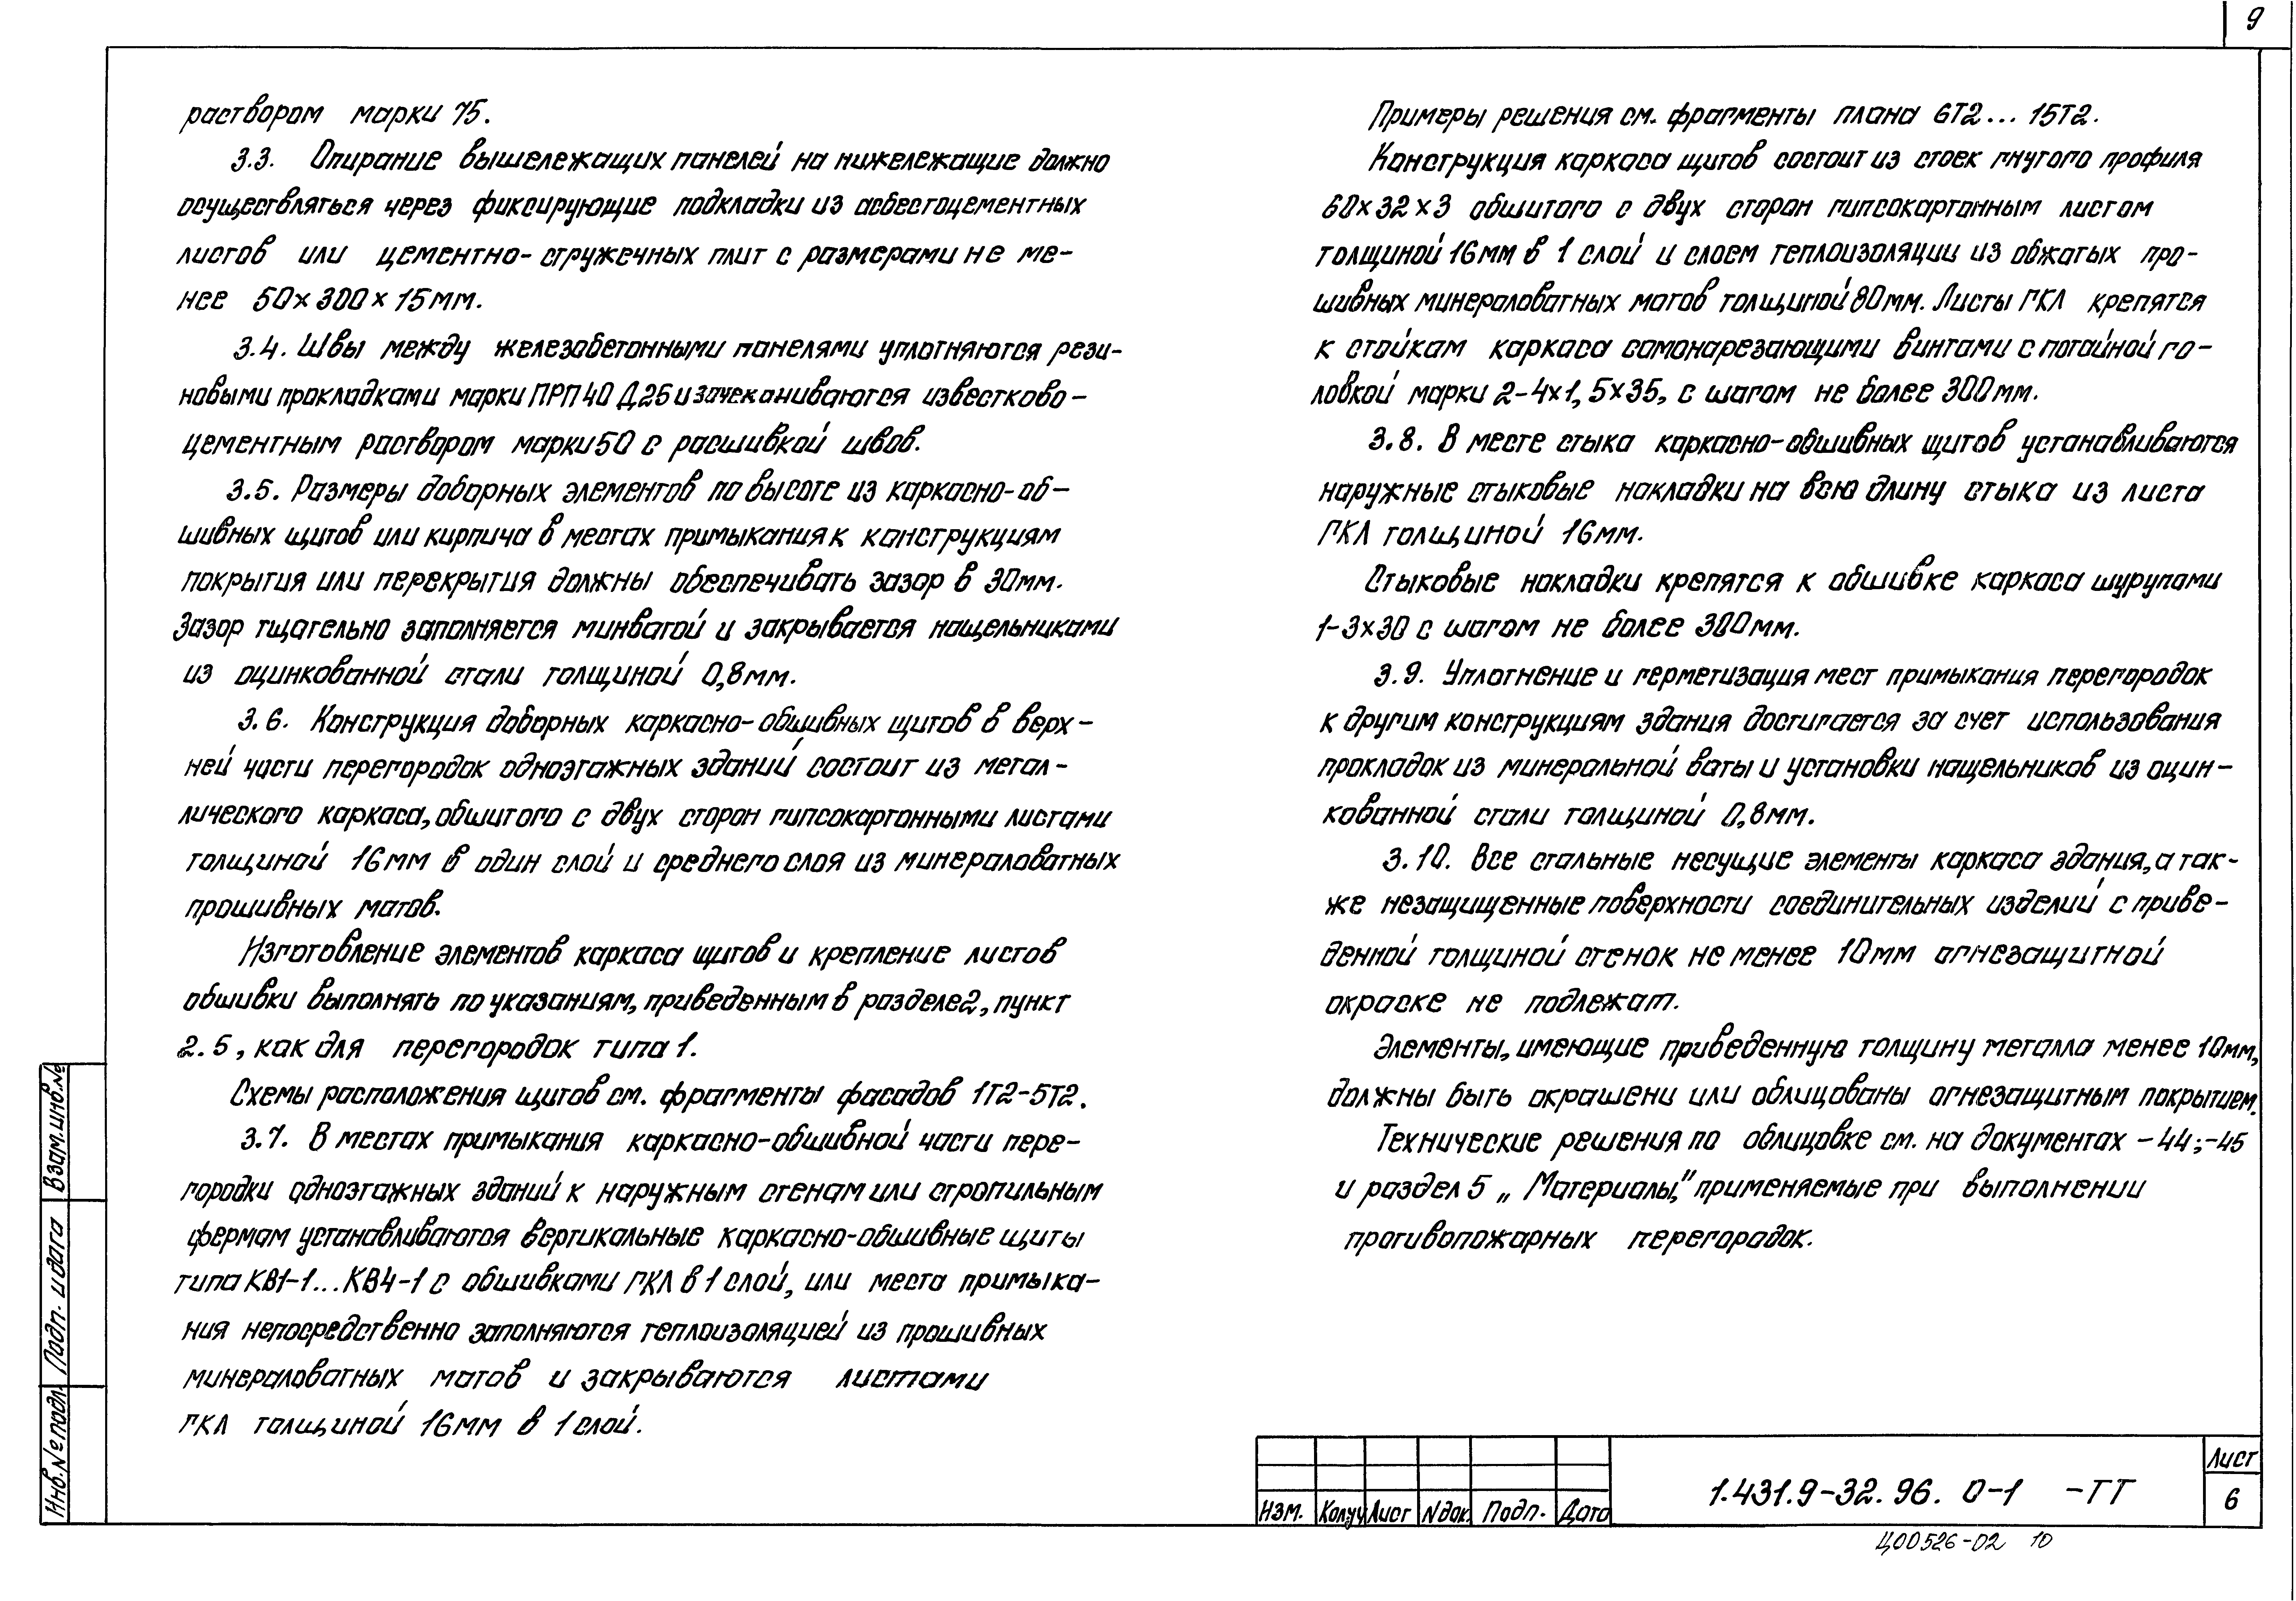 9
раствором марки 75.
3.3. Опирание вышележащих панелей на нижележащие должно
осуществляться через фиксирующие подкладки из асбестоцементных
листов или цементно-стружечных плит с размерами не ме-
нее 50×300×15мм.
3.4. Швы между железобетонными панелями уплотняются рези-
новыми прокладками марки ПРП 40 Д25 и зачеканиваются известково-
цементным раствором марки 50 с расшивкой швов.
3.5. Размеры доборных элементов по высоте из каркасно-об-
шивных щитов или кирпича в местах примыкания к конструкциям
покрытия или перекрытия должны обеспечивать зазор в 30мм.
Зазор тщательно заполняется минватой и закрывается нащельниками
из оцинкованной стали толщиной 0,8мм.
3.6. Конструкция доборных каркасно-обшивных щитов в верх-
ней части перегородок одноэтажных зданий состоит из метал-
лического каркаса, обшитого с двух сторон гипсокартонными листами
толщиной 16мм в один слой и среднего слоя из минераловатных
прошивных матов.
Изготовление элементов каркаса щитов и крепление листов
обшивки выполнять по указаниям, приведенным в разделе 2, пункт
2.5, как для перегородок типа 1.
Схемы расположения щитов см. фрагменты фасадов 1Т2-5Т2.
3.7. В местах примыкания каркасно-обшивной части пере-
городки одноэтажных зданий к наружным стенам или стропильным
фермам устанавливаются вертикальные каркасно-обшивные щиты
типа КВ1-1...КВ4-1 с обшивками ГКЛ в 1 слой, или места примыка-
ния непосредственно заполняются теплоизоляцией из прошивных
минераловатных матов и закрываются листами
ГКЛ толщиной 16мм в 1 слой.
Примеры решения см. фрагменты плана 6Т2... 15Т2.
Конструкция каркаса щитов состоит из стоек гнутого профиля
60×32×3 обшитого с двух сторон гипсокартонным листом
толщиной 16мм в 1 слой и слоем теплоизоляции из обжатых про-
шивных минераловатных матов толщиной 80мм. Листы ГКЛ крепятся
к стойкам каркаса самонарезающими винтами с потайной го-
ловкой марки 2-4×1,5×35, с шагом не более 300мм.
3.8. В месте стыка каркасно-обшивных щитов устанавливаются
наружные стыковые накладки на всю длину стыка из листа
ГКЛ толщиной 16мм.
Стыковые накладки крепятся к обшивке каркаса шурупами
1-3×30 с шагом не более 300мм.
3.9. Уплотнение и герметизация мест примыкания перегородок
к другим конструкциям здания достигается за счет использования
прокладок из минеральной ваты и установки нащельников из оцин-
кованной стали толщиной 0,8мм.
3.10. Все стальные несущие элементы каркаса здания, а так-
же незащищенные поверхности соединительных изделий с приве-
денной толщиной стенок не менее 10мм огнезащитной
окраске не подлежат.
Элементы, имеющие приведенную толщину металла менее 10мм,
должны быть окрашены или облицованы огнезащитным покрытием.
Технические решения по облицовке см. на документах -44;-45
и раздел 5 „Материалы," применяемые при выполнении
противопожарных перегородок.
Взам.инв.№
Подп. и дата
Инв.№ подл.
Изм. Колуч Лист Nдок. Подп. Дата
1.431.9-32.96. 0-1 -ТТ
Лист
6
Ц00526-02 10